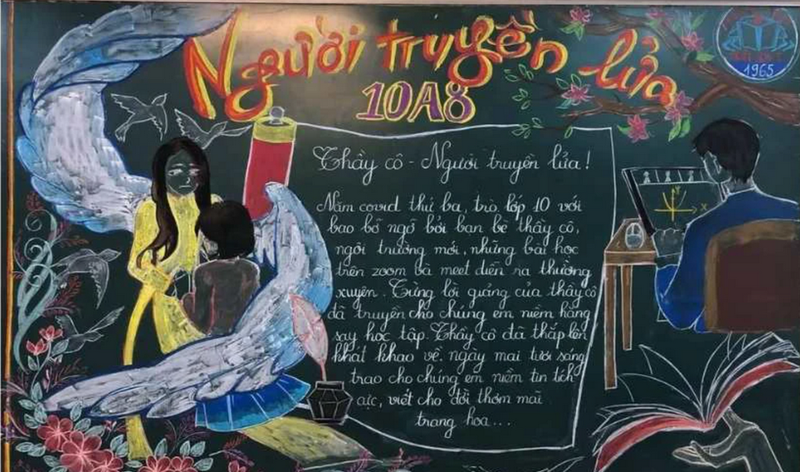 Người truyền lửa
10A8
1965
Thầy cô - Người truyền lửa!
Năm covid thứ ba, trò lớp 10 với
bao bỡ ngỡ bởi bạn bè thầy cô,
ngôi trường mới, những bài học
trên zoom và meet diễn ra thường
xuyên. Từng lời giảng của thầy cô
đã truyền cho chúng em niềm hăng
say học tập. Thầy cô đã thắp lên
khát khao về ngày mai tươi sáng
trao cho chúng em niềm tin tích
cực, viết cho đời thêm mãi
trang hoa...
y
x